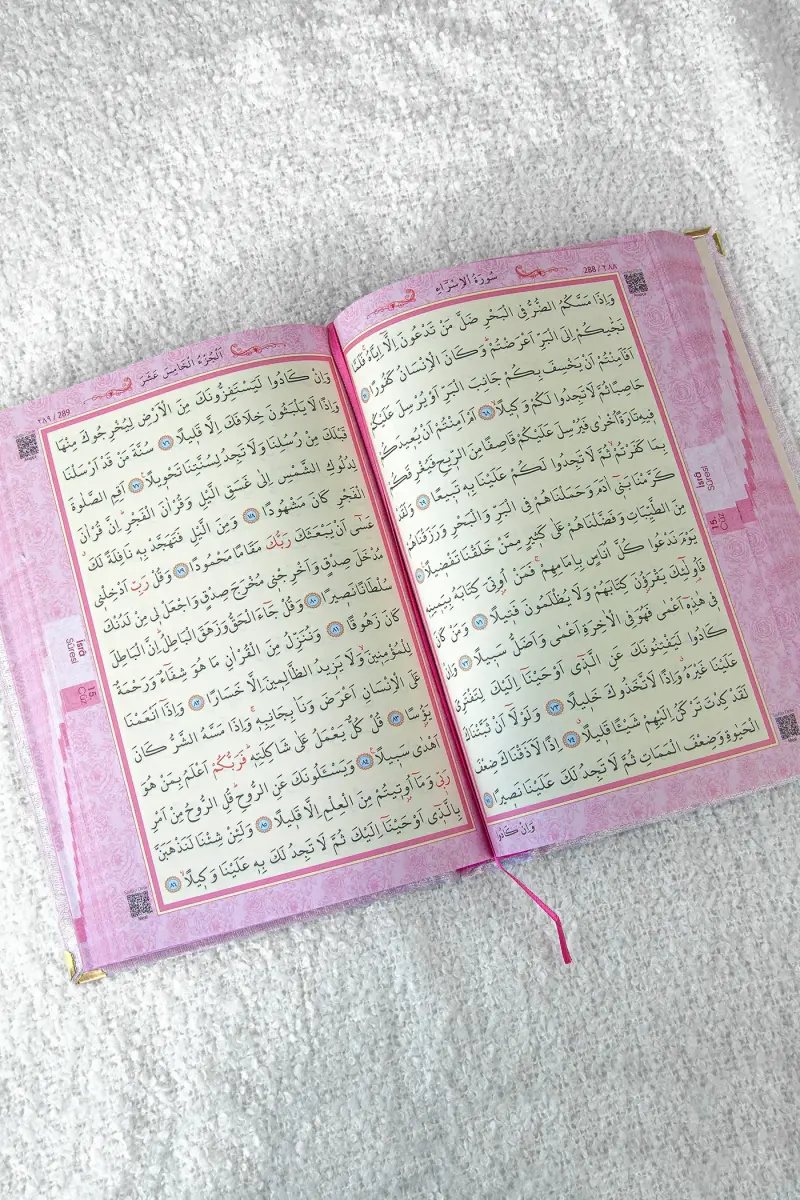 سُورَةُ الْاِسْرَٓاءِ
288 / ٢٨٨
وَاِذَا مَسَّكُمُ الضُّرُّ فِي الْبَحْرِ ضَلَّ مَنْ تَدْعُونَ اِلَّٓا اِيَّاهُۚ فَلَمَّا
نَجّٰيكُمْ اِلَى الْبَرِّ اَعْرَضْتُمْۜ وَكَانَ الْاِنْسَانُ كَفُورًا ٦٧
اَفَاَمِنْتُمْ اَنْ يَخْسِفَ بِكُمْ جَانِبَ الْبَرِّ اَوْ يُرْسِلَ عَلَيْكُمْ
حَاصِبًا ثُمَّ لَا تَجِدُوا لَكُمْ وَكٖيلًاۙ ٦٨ اَمْ اَمِنْتُمْ اَنْ يُعٖيدَكُمْ
فٖيهِ تَارَةً اُخْرٰى فَيُرْسِلَ عَلَيْكُمْ قَاصِفًا مِنَ الرّٖيحِ فَيُغْرِقَكُمْ
بِمَا كَفَرْتُمْۙ ثُمَّ لَا تَجِدُوا لَكُمْ عَلَيْنَا بِهٖ تَبٖيعًا ٦٩ وَلَقَدْ
كَرَّمْنَا بَنٖٓي اٰدَمَ وَحَمَلْنَاهُمْ فِي الْبَرِّ وَالْبَحْرِ وَرَزَقْنَاهُمْ
مِنَ الطَّيِّبَاتِ وَفَضَّلْنَاهُمْ عَلٰى كَثٖيرٍ مِمَّنْ خَلَقْنَا تَفْضٖيلًا ٧٠
يَوْمَ نَدْعُوا كُلَّ اُنَاسٍ بِاِمَامِهِمْۚ فَمَنْ اُو۫تِيَ كِتَابَهُ بِيَمٖينِهٖ
فَاُو۬لٰٓئِكَ يَقْرَؤُ۫نَ كِتَابَهُمْ وَلَا يُظْلَمُونَ فَتٖيلًا ٧١ وَمَنْ كَانَ
فٖي هٰذِهٖٓ اَعْمٰى فَهُوَ فِي الْاٰخِرَةِ اَعْمٰى وَاَضَلُّ سَبٖيلًا ٧٢ وَاِنْ
كَادُوا لَيَفْتِنُونَكَ عَنِ الَّذٖٓي اَوْحَيْنَٓا اِلَيْكَ لِتَفْتَرِيَ
عَلَيْنَا غَيْرَهُۗ وَاِذًا لَاتَّخَذُوكَ خَلٖيلًا ٧٣ وَلَوْلَٓا اَنْ ثَبَّتْنَاكَ
لَقَدْ كِدْتَ تَرْكَنُ اِلَيْهِمْ شَيْـًٔا قَلٖيلًاۗ ٧٤ اِذًا لَاَذَقْنَاكَ ضِعْفَ
الْحَيٰوةِ وَضِعْفَ الْمَمَاتِ ثُمَّ لَا تَجِدُ لَكَ عَلَيْنَا نَصٖيرًا ٧٥
وَاِنْ كَادُوا
İsrâ
Sûresi
15.
Cüz
اَلْجُزْءُ الْخَامِسَ عَشَرَ
٢٨٩ / 289
وَاِنْ كَادُوا لَيَسْتَفِزُّونَكَ مِنَ الْاَرْضِ لِيُخْرِجُوكَ مِنْهَا
وَاِذًا لَا يَلْبَثُونَ خِلَافَكَ اِلَّا قَلٖيلًا ٧٦ سُنَّةَ مَنْ قَدْ اَرْسَلْنَا
قَبْلَكَ مِنْ رُسُلِنَا وَلَا تَجِدُ لِسُنَّتِنَا تَحْوٖيلًا ٧٧ اَقِمِ الصَّلٰوةَ
لِدُلُوكِ الشَّمْسِ اِلٰى غَسَقِ الَّيْلِ وَقُرْاٰنَ الْفَجْرِۜ اِنَّ قُرْاٰنَ
الْفَجْرِ كَانَ مَشْهُودًا ٧٨ وَمِنَ الَّيْلِ فَتَهَجَّدْ بِهٖ نَافِلَةً لَكَۗ
عَسٰٓى اَنْ يَبْعَثَكَ رَبُّكَ مَقَامًا مَحْمُودًا ٧٩ وَقُلْ رَبِّ اَدْخِلْنٖي
مُدْخَلَ صِدْقٍ وَاَخْرِجْنٖي مُخْرَجَ صِدْقٍ وَاجْعَلْ لٖي مِنْ لَدُنْكَ
سُلْطَانًا نَصٖيرًا ٨٠ وَقُلْ جَٓاءَ الْحَقُّ وَزَهَقَ الْبَاطِلُۜ اِنَّ الْبَاطِلَ
كَانَ زَهُوقًا ٨١ وَنُنَزِّلُ مِنَ الْقُرْاٰنِ مَا هُوَ شِفَٓاءٌ وَرَحْمَةٌ
لِلْمُؤْمِنٖينَۙ وَلَا يَزٖيدُ الظَّالِمٖينَ اِلَّا خَسَارًا ٨٢ وَاِذَٓا اَنْعَمْنَا
عَلَى الْاِنْسَانِ اَعْرَضَ وَنَاٰ بِجَانِبِهٖۚ وَاِذَا مَسَّهُ الشَّرُّ كَانَ
يَؤُ۫سًا ٨٣ قُلْ كُلٌّ يَعْمَلُ عَلٰى شَاكِلَتِهٖۜ فَرَبُّكُمْ اَعْلَمُ بِمَنْ هُوَ
اَهْدٰى سَبٖيلًا۟ ٨٤ وَيَسْـَٔلُونَكَ عَنِ الرُّوحِۜ قُلِ الرُّوحُ مِنْ اَمْرِ
رَبّٖي وَمَٓا اُو۫تٖيتُمْ مِنَ الْعِلْمِ اِلَّا قَلٖيلًا ٨٥ وَلَئِنْ شِئْنَا لَنَذْهَبَنَّ
بِالَّذٖٓي اَوْحَيْنَٓا اِلَيْكَ ثُمَّ لَا تَجِدُ لَكَ بِهٖ عَلَيْنَا وَكٖيلًاۙ ٨٦
İsrâ
Sûresi
15.
Cüz